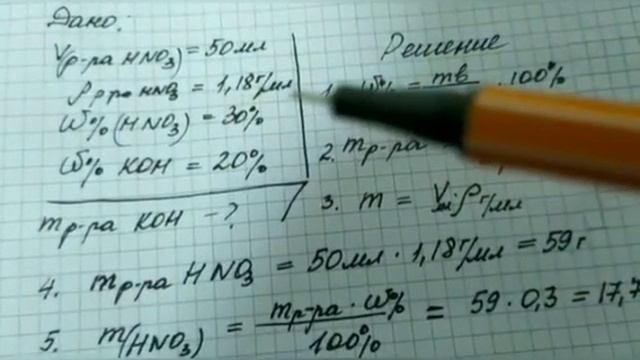 Дано:
V(р-ра HNO₃) = 50мл
ρ р-ра HNO₃ = 1,18г/мл
ω% (HNO₃) = 30%
ω% KOH = 20%
mр-ра KOH - ?
Решение
1. ω% = mв · 100%
2. mр-ра
3. m = V · ρ г/мл
4. mр-ра HNO₃ = 50мл · 1,18г/мл = 59г
5. m(HNO₃) = mр-ра · ω% / 100% = 59 · 0,3 = 17,7